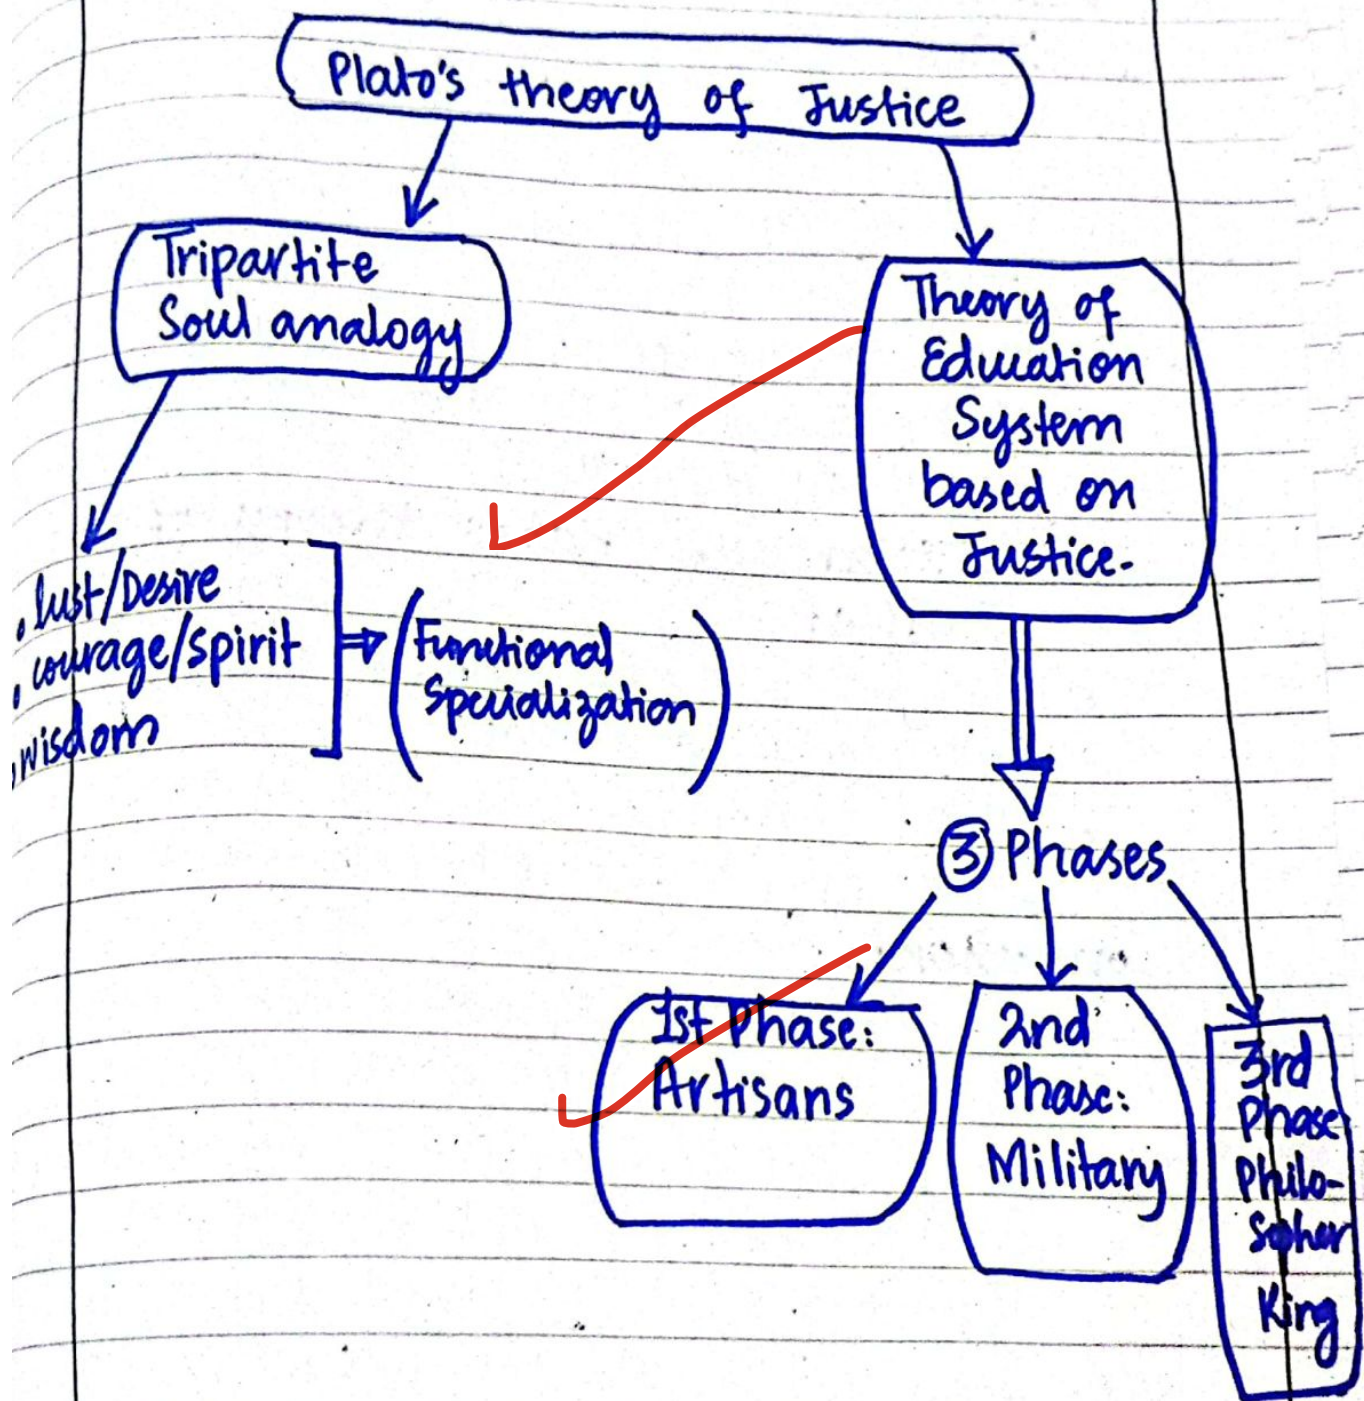 Plato's theory of Justice
Tripartite
Soul analogy
Theory of
Education
System
based on
Justice.
. lust/Desire
. courage/spirit
. wisdom
(Functional
Specialization)
③ Phases
1st Phase:
Artisans
2nd
Phase:
Military
3rd
Phase
Philo-
sopher
King